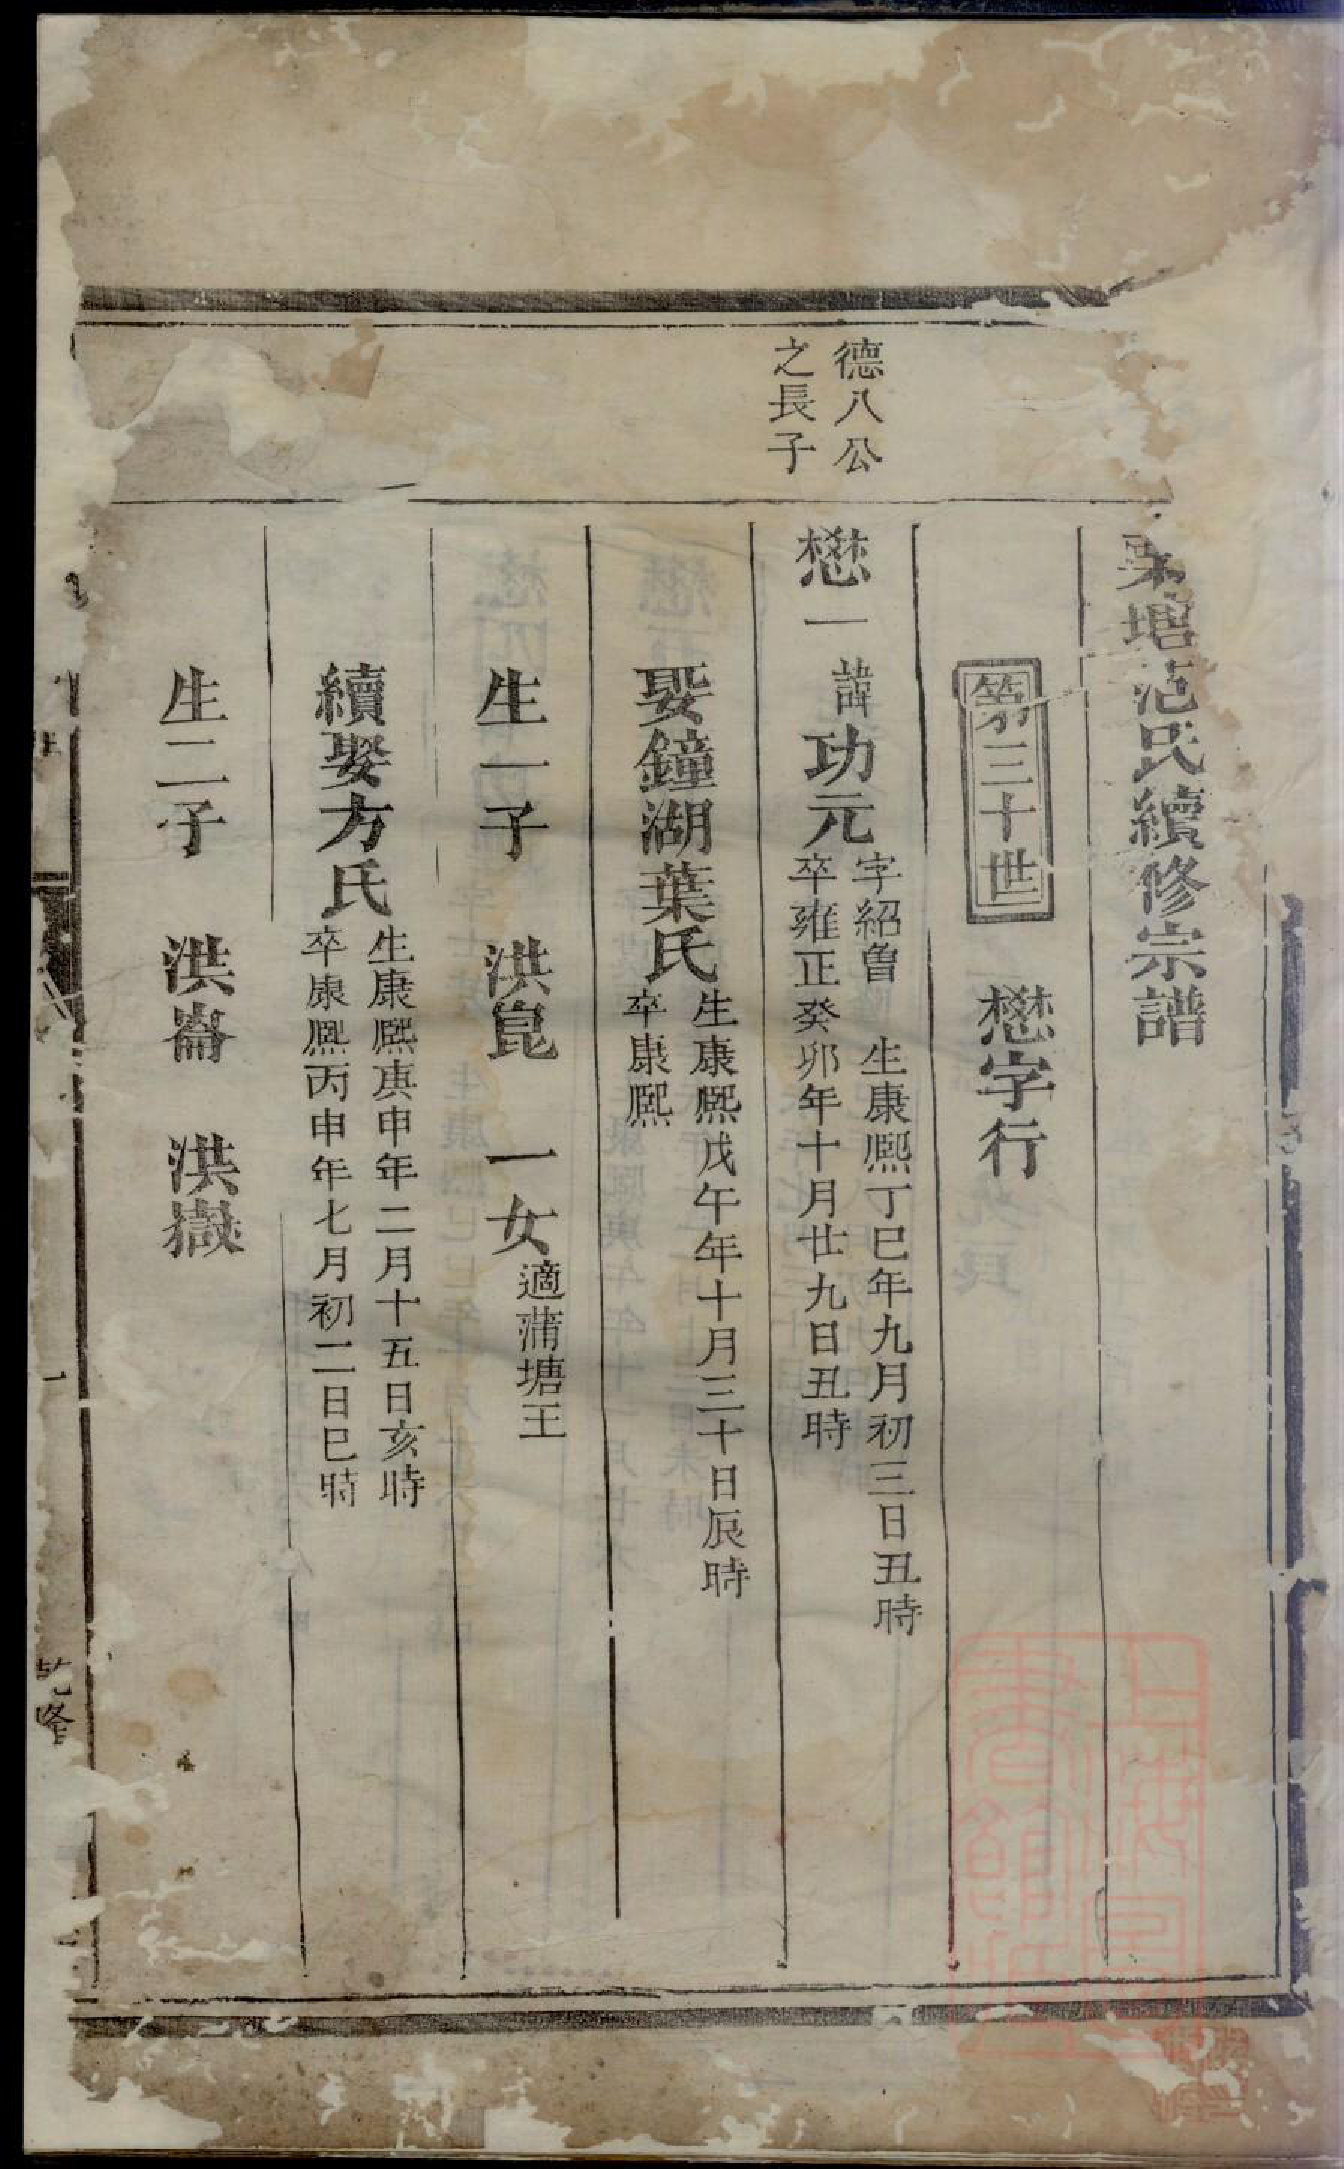 埳范氏續修宗譜
第三十世
懋字行
德八公
之長子
懋一
諱
功元
字紹魯 生康熙丁巳年九月初三日丑時
卒雍正癸卯年十月廿九日丑時
娶鐘湖葉氏
生康熙戊午年十月三十日辰時
卒康熙
生一子 洪崑 一女
適蒲塘王
續娶方氏
生康熙庚申年二月十五日亥時
卒康熙丙申年七月初二日巳時
生二子 洪崙 洪嶽
一
乾隆
上海圖書館藏